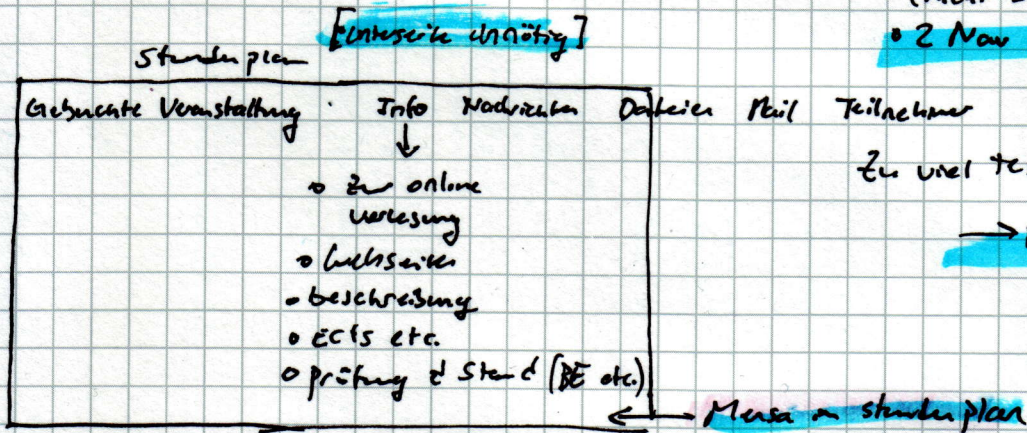 [Unterseite unnötig]
• 2 Nav
Stundenplan
Gebuchte Veranstaltung Info Nachrichten Dateien Mail Teilnehmer
↓
• Zur online
Vorlesung
Zu viel
→
• beschreibung
• ECTS etc.
• prüfung & Stand (BE etc.)
← Mensa in stundenplan